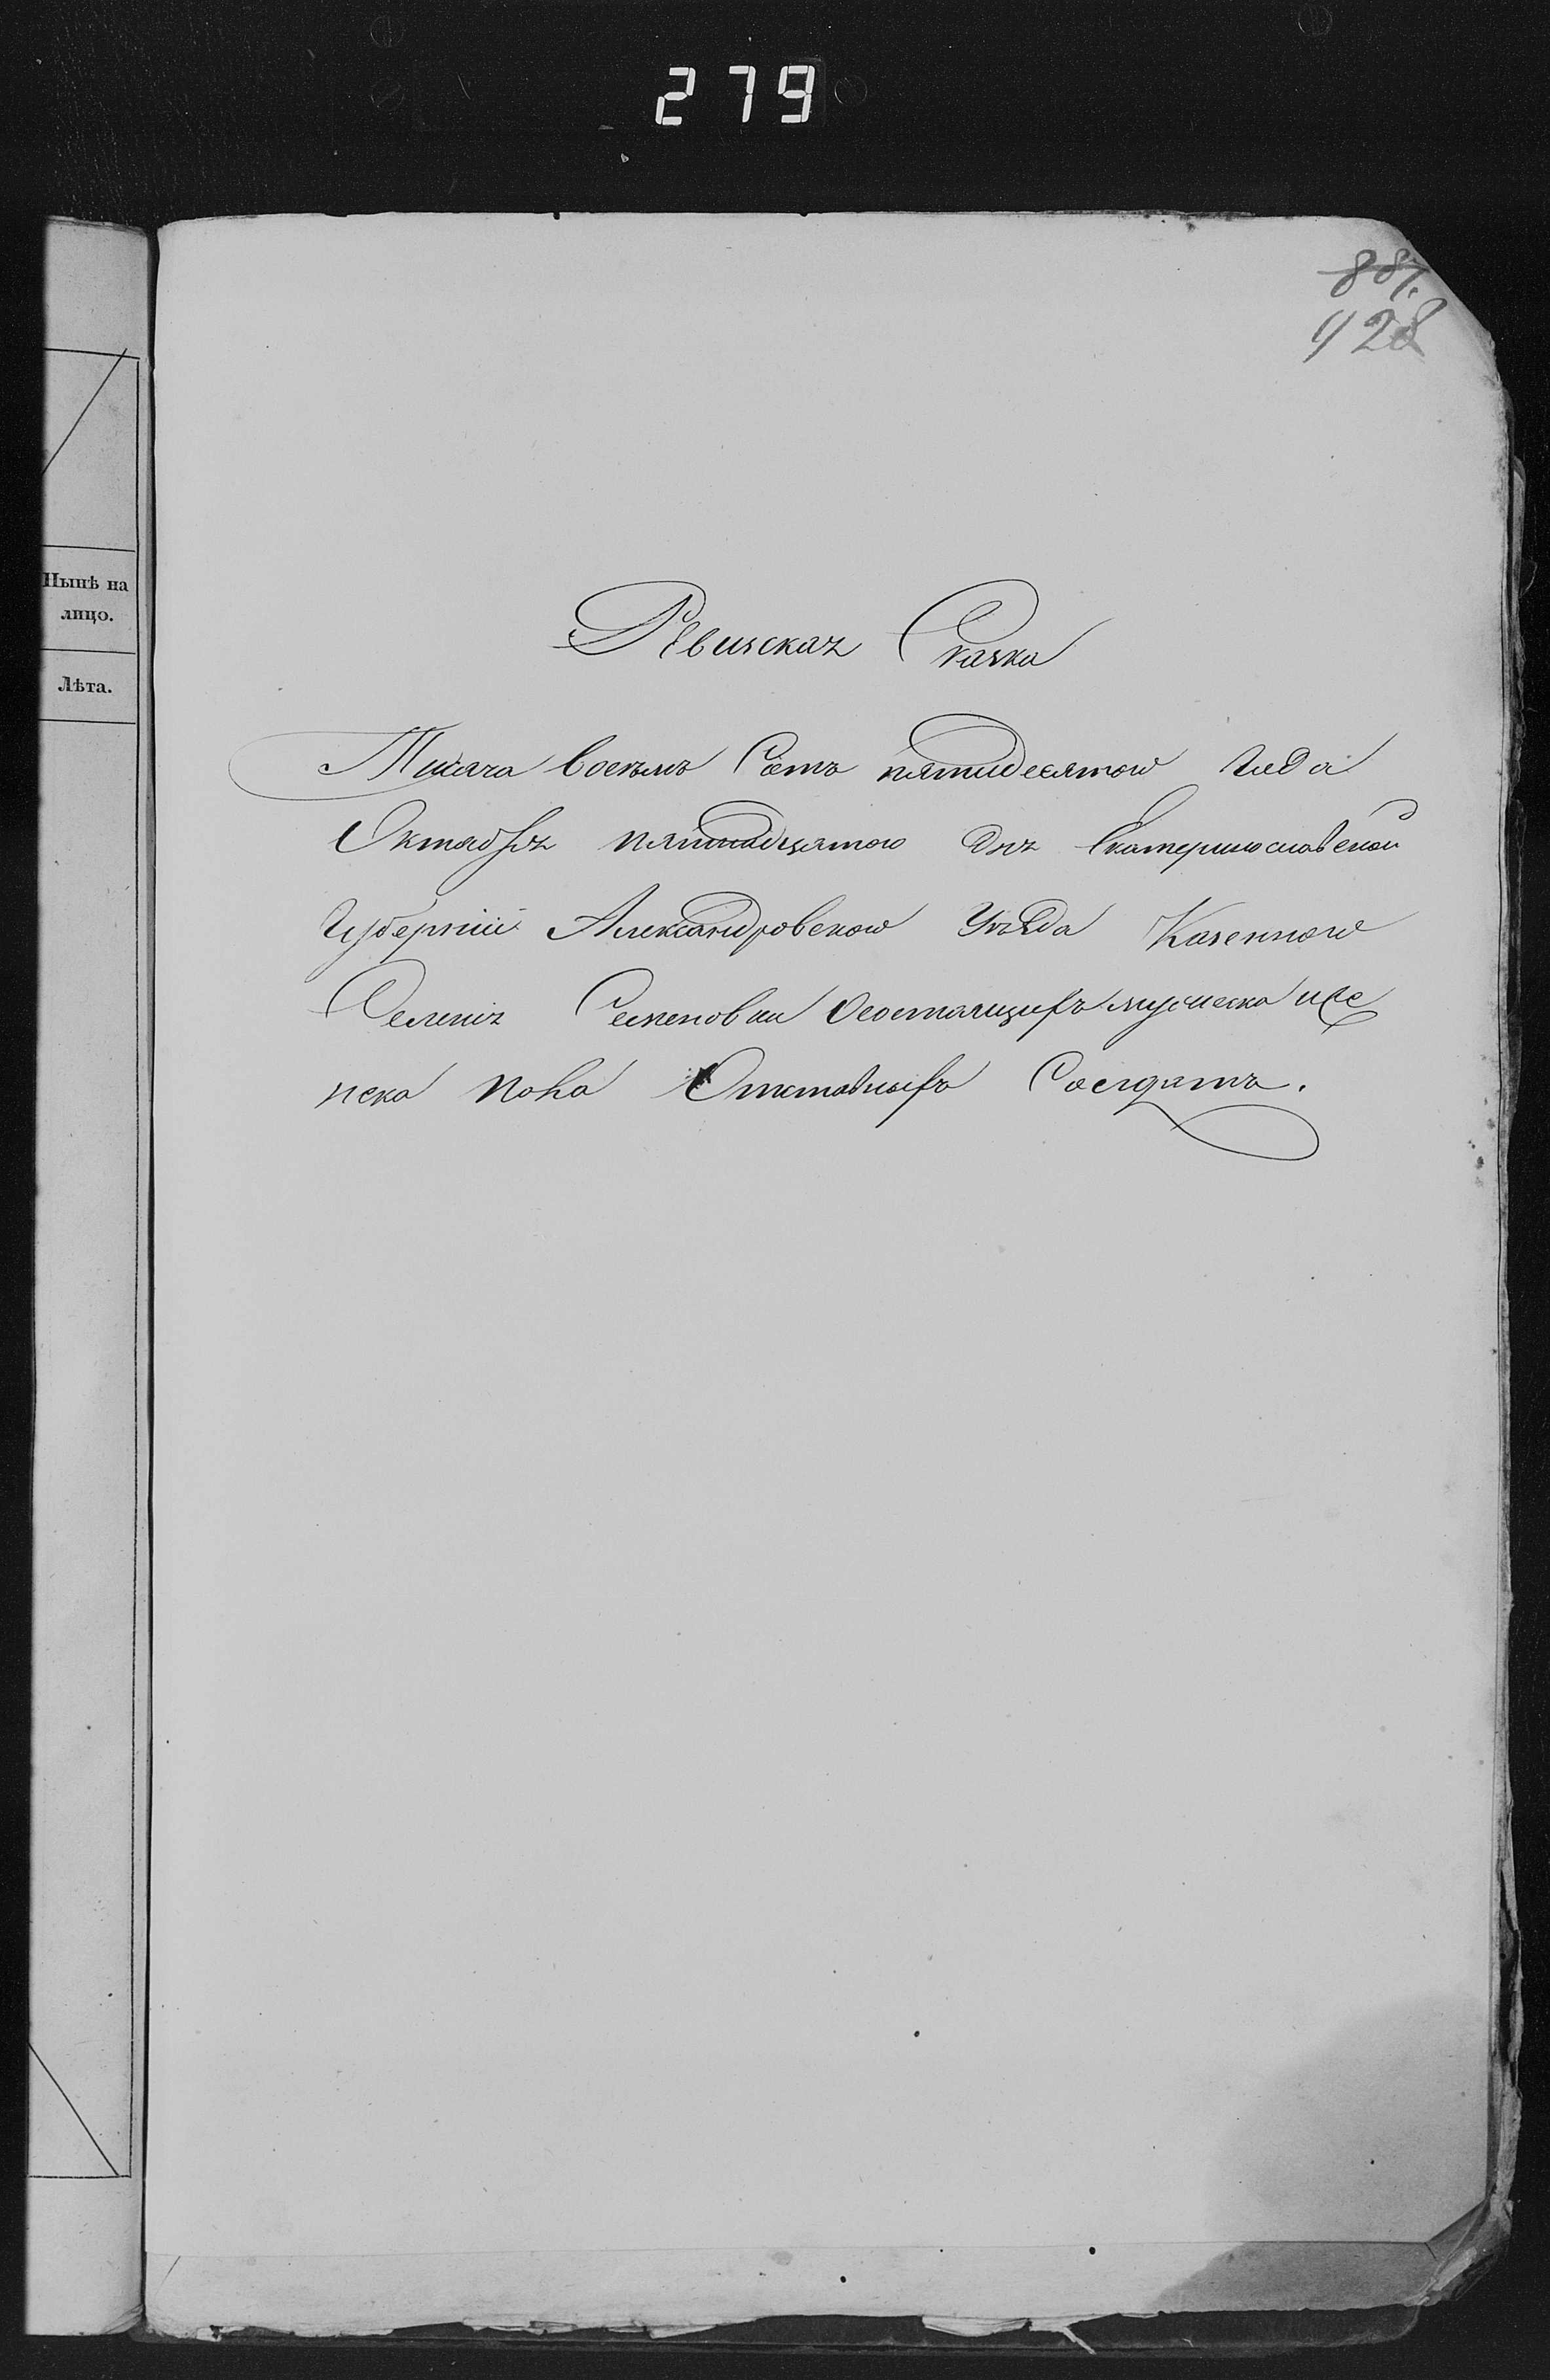 279
887.
428
Нынѣ на
лицо.
Лѣта.
Ревизская Сказка
Тысяча восемь Сотъ пятидесятого года
Октября пятнадцатого дня Екатеринославской
Губерніи Александровского Уѣзда Казенного
Селенія Семеновки о состоящихъ мужеска и же
нска пола Отставныхъ Солдатъ.